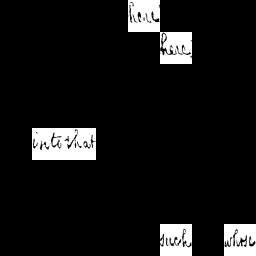 here
here
into that
such whose